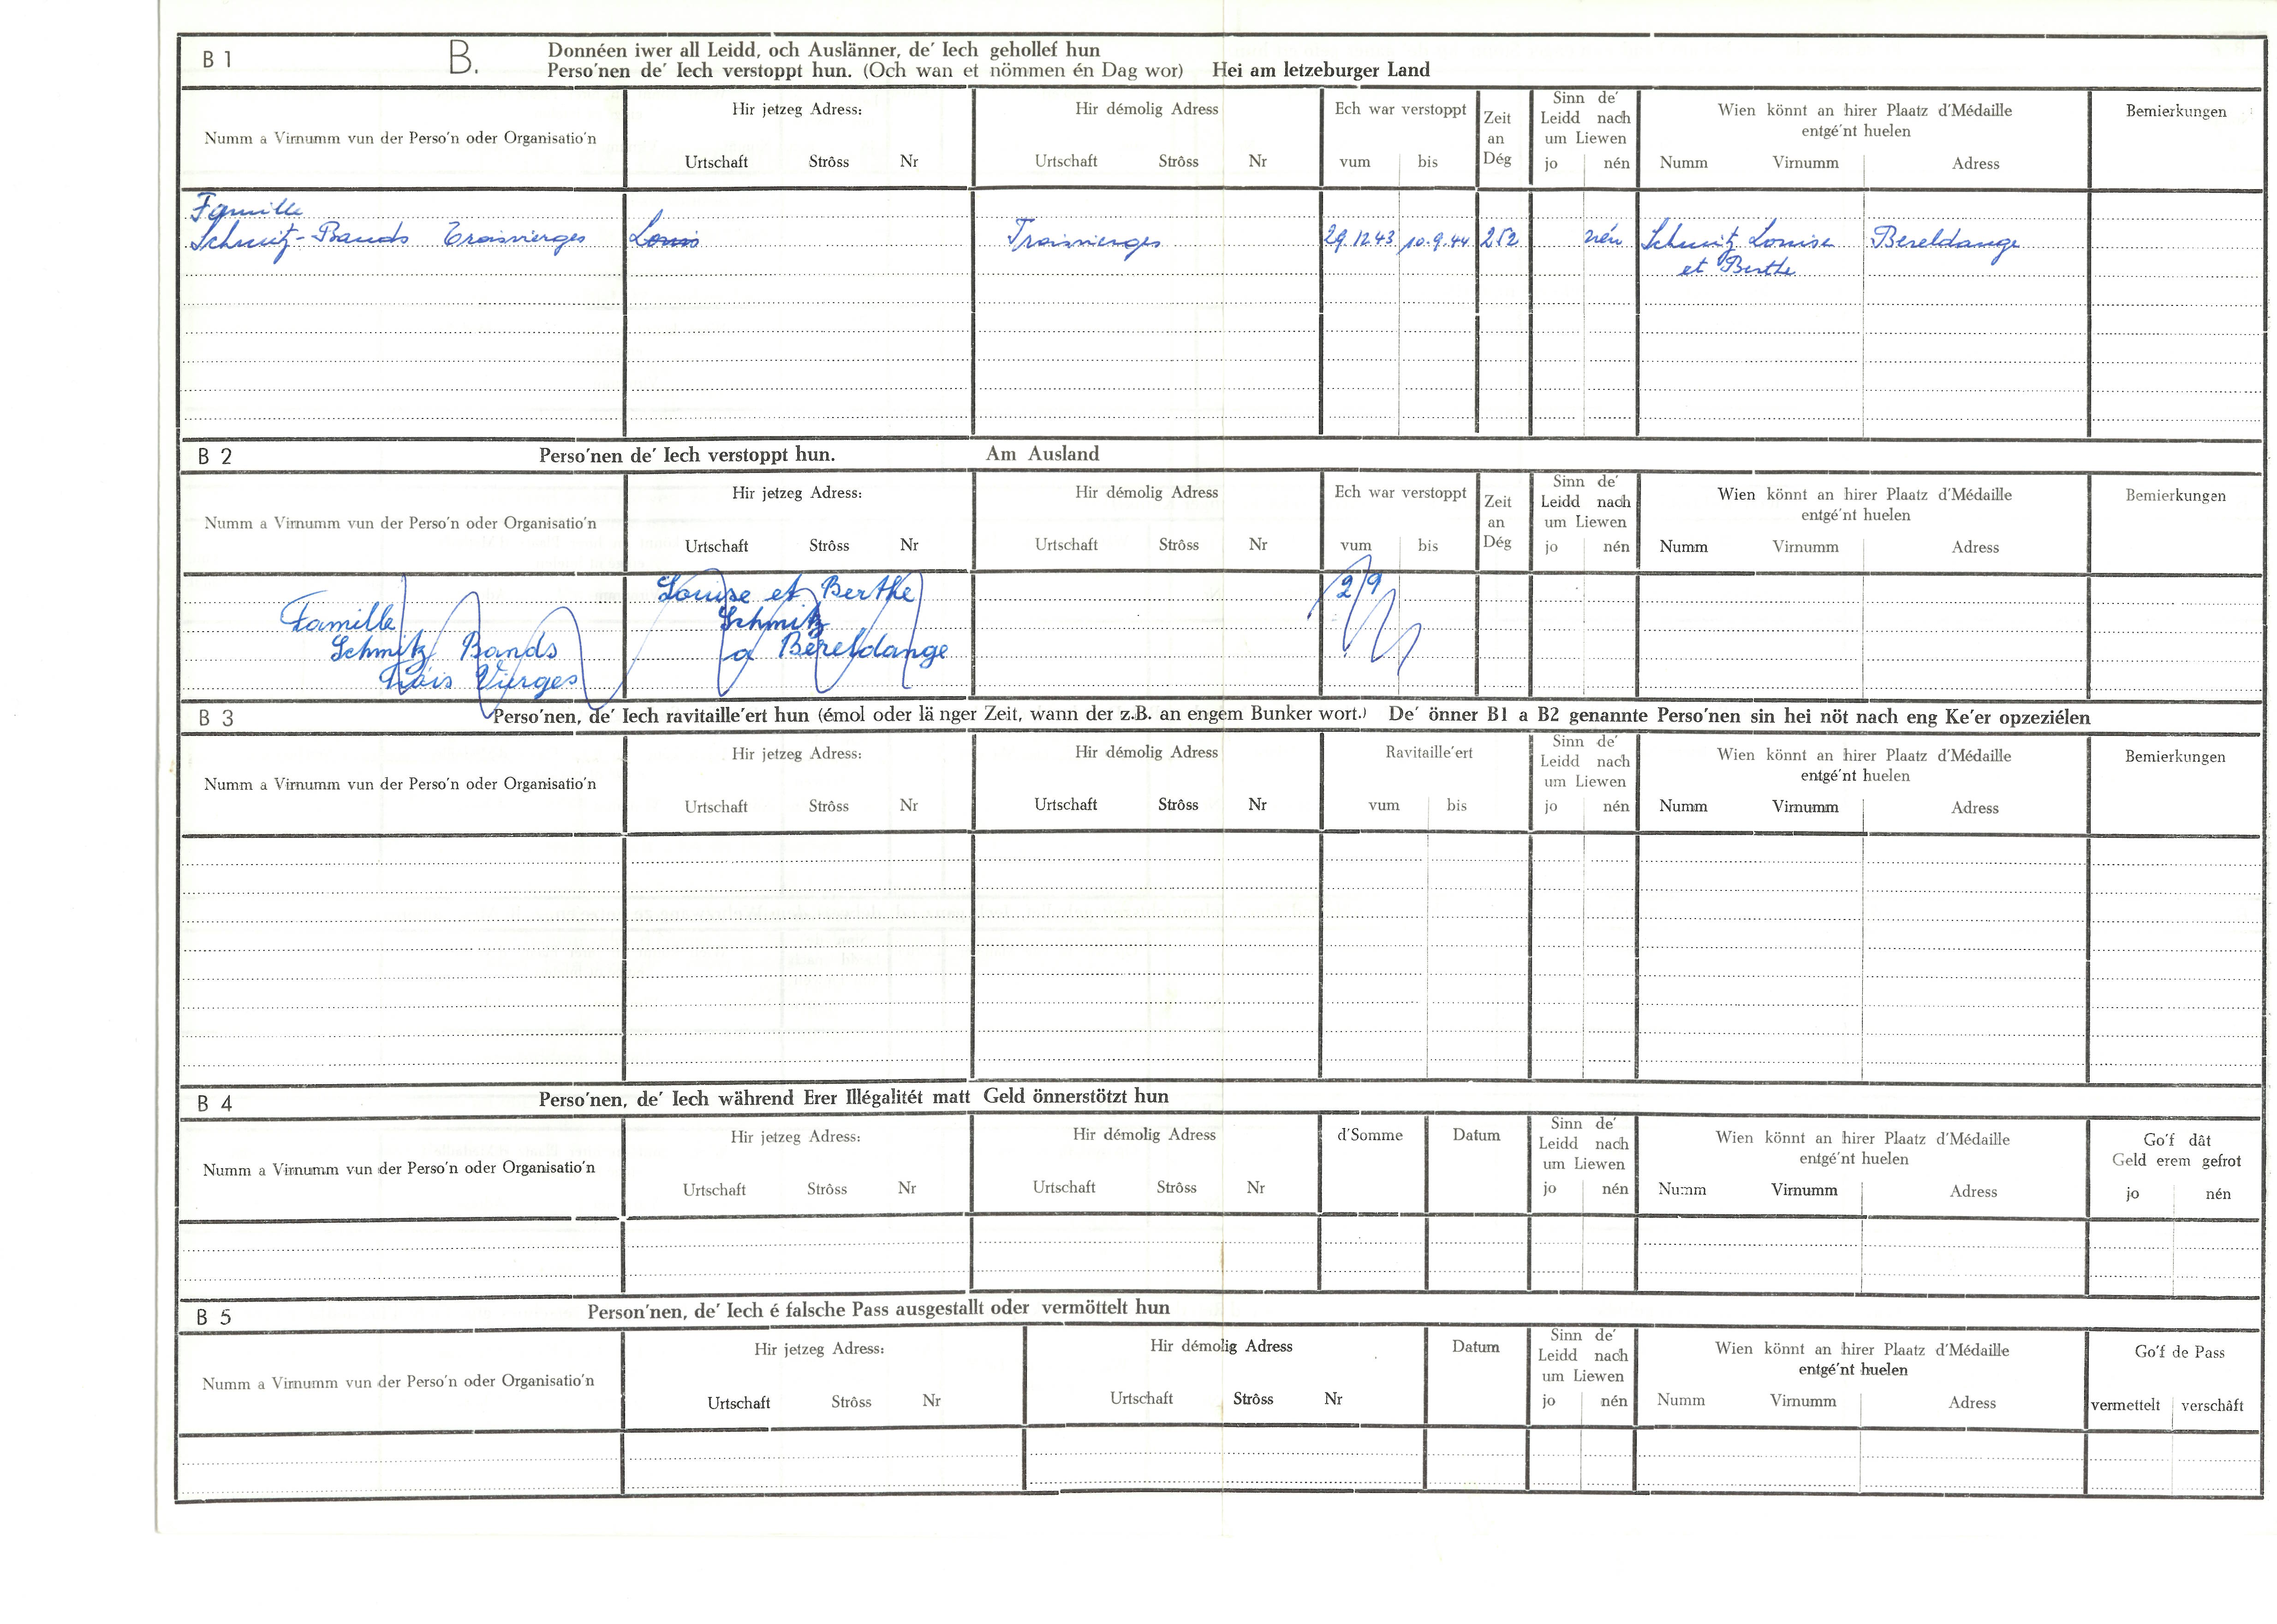 B 1 B. Donnéen iwer all Leidd, och Auslänner, de´ Iech gehollef hun
Perso´nen de´ Iech verstoppt hun. (Och wan et nömmen én Dag wor) Hei am letzeburger Land
Numm a Virnumm vun der Perso´n oder Organisatio´n
Hir jetzeg Adress:
Urtschaft Strôss Nr
Hir démolig Adress
Urtschaft Strôss Nr
Ech war verstoppt
vum bis
Zeit
an
Dég
Sinn de´
Leidd nach
um Liewen
jo nén
Wien könnt an hirer Plaatz d´Médaille
entgé´nt huelen
Numm Virnumm Adress
Bemierkungen
Famille
Schmitz-Bands Troisvierges Louis Troisvierges 29.12.43 10.9.44 252 nén Schmitz Louise Bereldange
et Berthe
B 2 Perso´nen de´ Iech verstoppt hun. Am Ausland
Numm a Virnumm vun der Perso´n oder Organisatio´n
Hir jetzeg Adress:
Urtschaft Strôss Nr
Hir démolig Adress
Urtschaft Strôss Nr
Ech war verstoppt
vum bis
Zeit
an
Dég
Sinn de´
Leidd nach
um Liewen
jo nén
Wien könnt an hirer Plaatz d´Médaille
entgé´nt huelen
Numm Virnumm Adress
Bemierkungen
Famille
Schmitz Bands
Trois Vierges
Louise et Berthe
Schmitz
a Bereldange
29
B 3 Perso´nen, de´ Iech ravitaille´ert hun (émol oder lä nger Zeit, wann der z.B. an engem Bunker wort.) De´ önner B1 a B2 genannte Perso´nen sin hei nöt nach eng Ke´er opzeziélen
Numm a Virnumm vun der Perso´n oder Organisatio´n
Hir jetzeg Adress:
Urtschaft Strôss Nr
Hir démolig Adress
Urtschaft Strôss Nr
Ravitaille´ert
vum bis
Sinn de´
Leidd nach
um Liewen
jo nén
Wien könnt an hirer Plaatz d´Médaille
entgé´nt huelen
Numm Virnumm Adress
Bemierkungen
B 4 Perso´nen, de´ Iech während Erer Illégalitét matt Geld önnerstötzt hun
Numm a Virnumm vun der Perso´n oder Organisatio´n
Hir jetzeg Adress:
Urtschaft Strôss Nr
Hir démolig Adress
Urtschaft Strôss Nr
d´Somme
Datum
Sinn de´
Leidd nach
um Liewen
jo nén
Wien könnt an hirer Plaatz d´Médaille
entgé´nt huelen
Numm Virnumm Adress
Go´f dât
Geld erem gefrot
jo nén
B 5 Person´nen, de´ Iech é falsche Pass ausgestallt oder vermöttelt hun
Numm a Virnumm vun der Perso´n oder Organisatio´n
Hir jetzeg Adress:
Urtschaft Strôss Nr
Hir démolig Adress
Urtschaft Strôss Nr
Datum
Sinn de´
Leidd nach
um Liewen
jo nén
Wien könnt an hirer Plaatz d´Médaille
entgé´nt huelen
Numm Virnumm Adress
Go´f de Pass
vermettelt verschâft